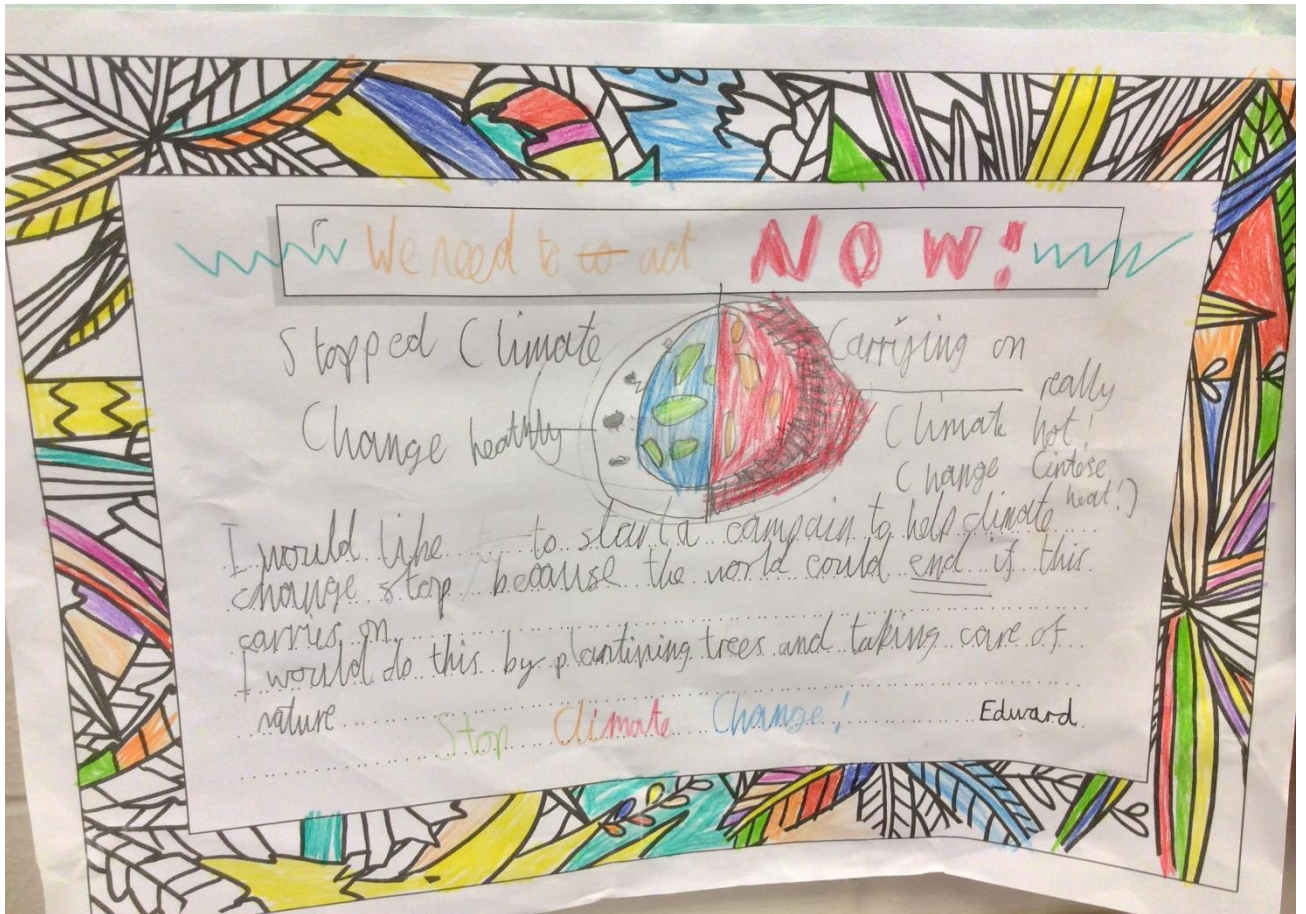 We need to co act NOW!
Stopped Climate
Change heathly
Carrising on
really
Climate hot!
Change (intese
heat!)
I would like to start a campain to help climate
change stop because the world could end if this
carries on.
I would do this by plantining trees and taking care of
nature
Stop Climate Change!
Edward